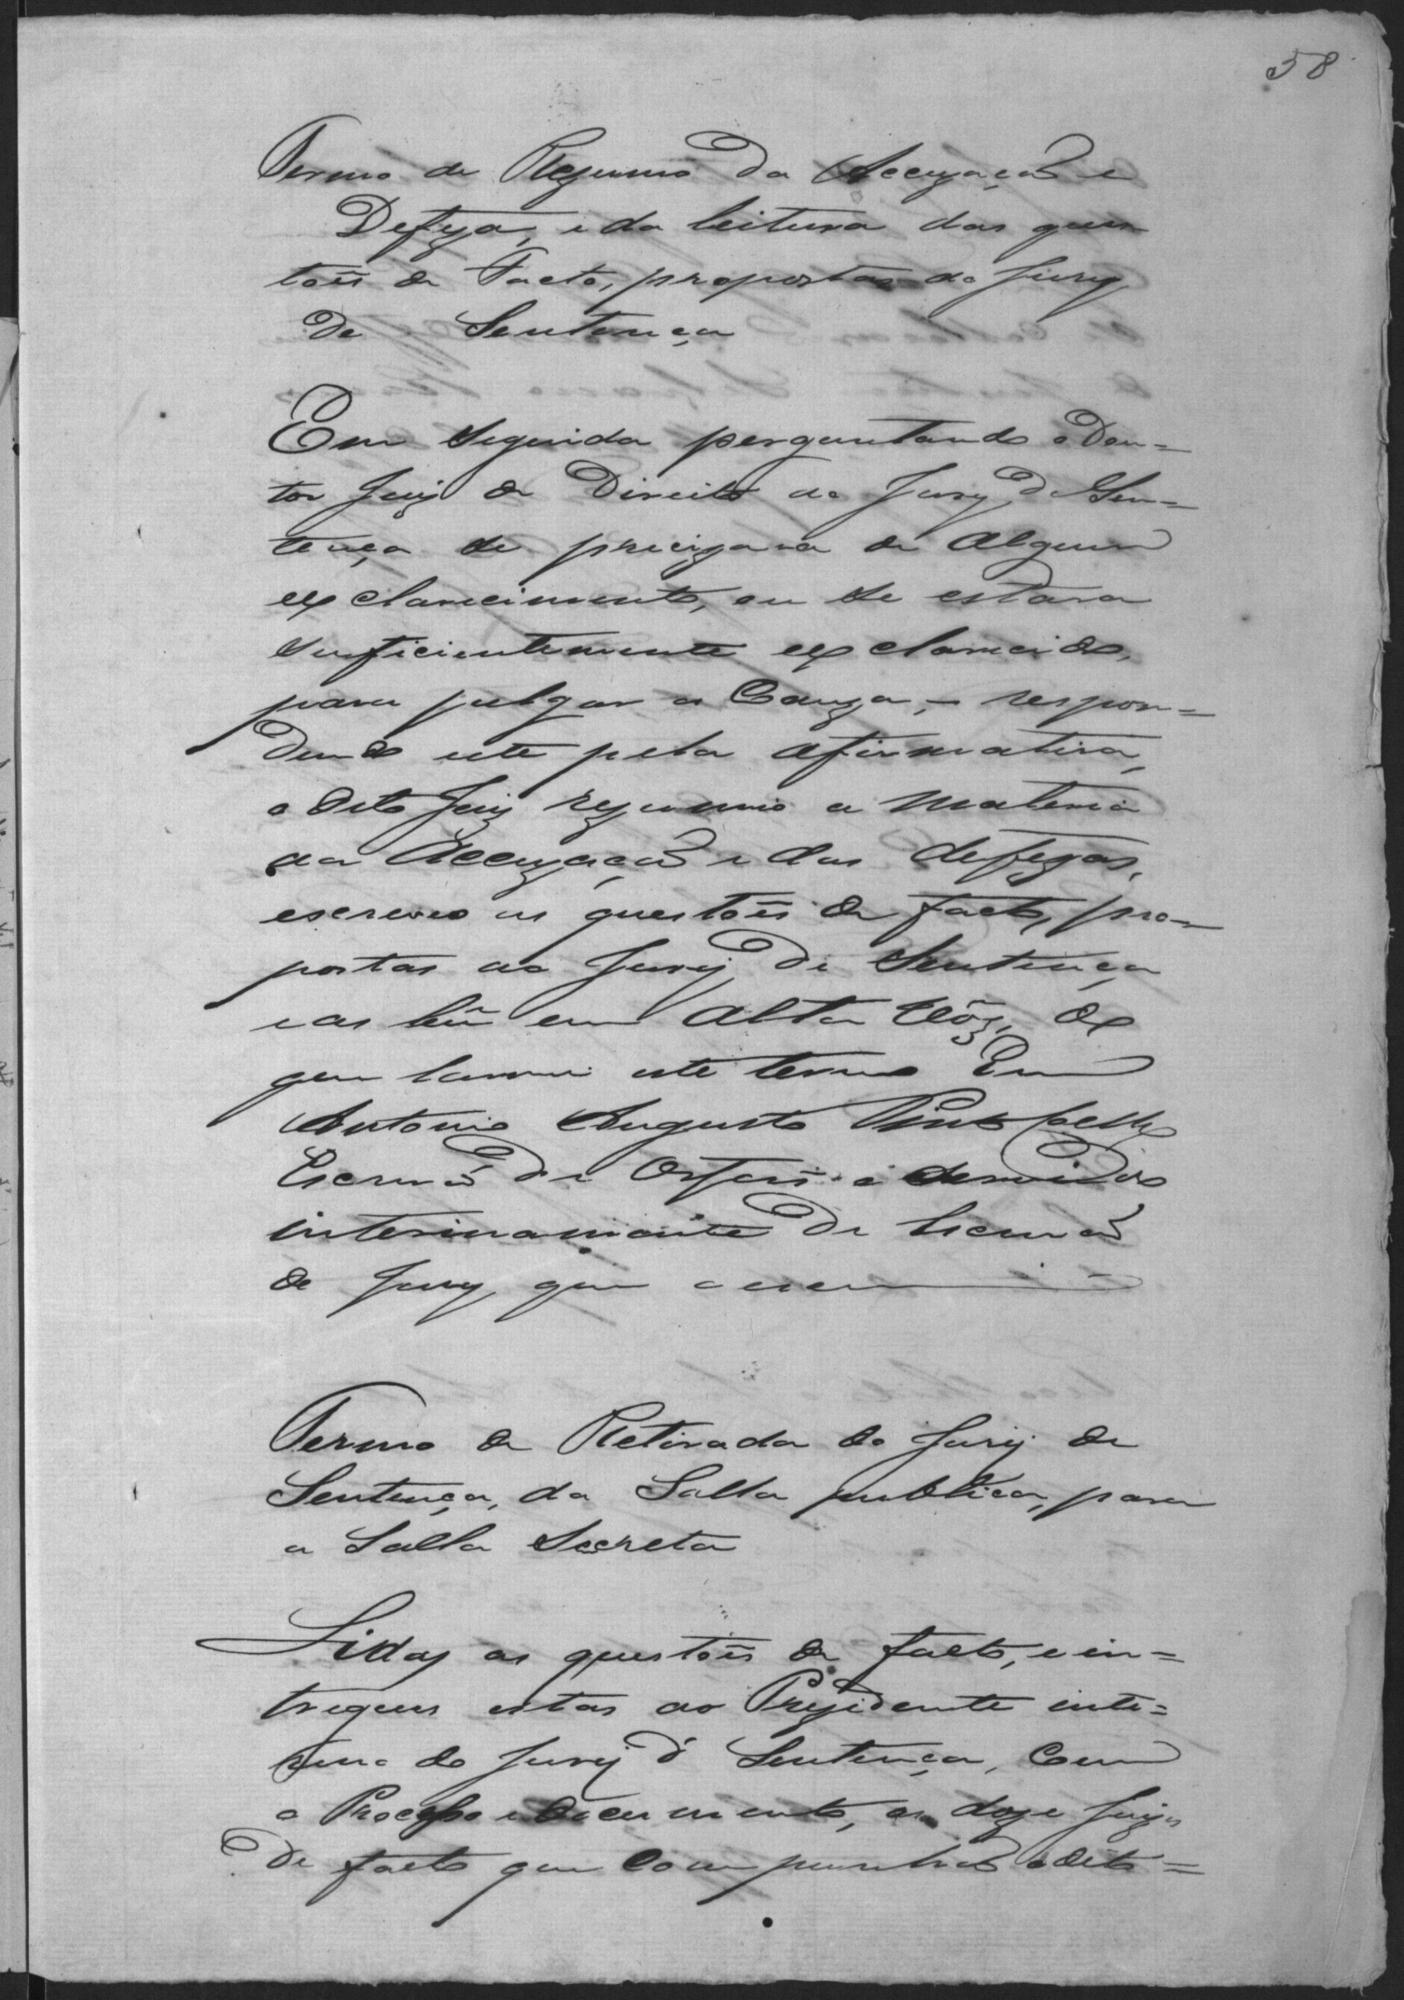 58
Termo de Rezumo da Accuzação e
Defeza, e da leitura das ques
tões de Facto, propostas ao Jury
de Sentença
Em seguida perguntando o Dou=
tor Juiz de Direito ao Jury de Sen=
tença se precizava de algum
exclarecimento, ou se estava
sufficientemente exclarecido,
para julgar a Cauza, respon=
dendo este pela afirmativa,
o dito Juiz rezumio a materia
da Accuzação e das defezas,
escreveo as questões de facto, pro=
postas ao Jury de Sentença
e as leu em alta vóz, do
que lavrei este termo Eu
Antonio Augusto Pinto
Escrivão de Orfãos e servindo
interinamente de Escrivão
do Jury, que o escrevi
Termo de Retirada do Jury de
Sentença, da Salla publica, para
a Salla Secreta
Lidas as questões de facto, e en=
tregues estas ao Prezidente inte=
rino do Jury de Sentença, com
o Processo e documentos, os doze Juizes
de facto que compunhão o dito=